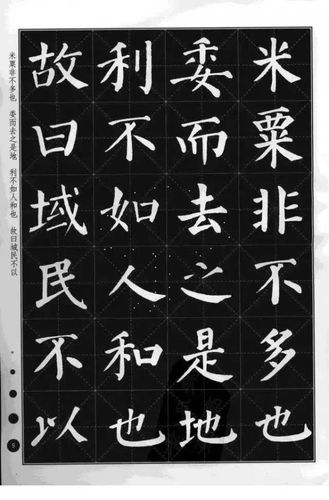 米粟非不多也
委而去之是地
利不如人和也
故曰域民不以
米粟非不多也　委而去之是地　利不如人和也　故曰域民不以